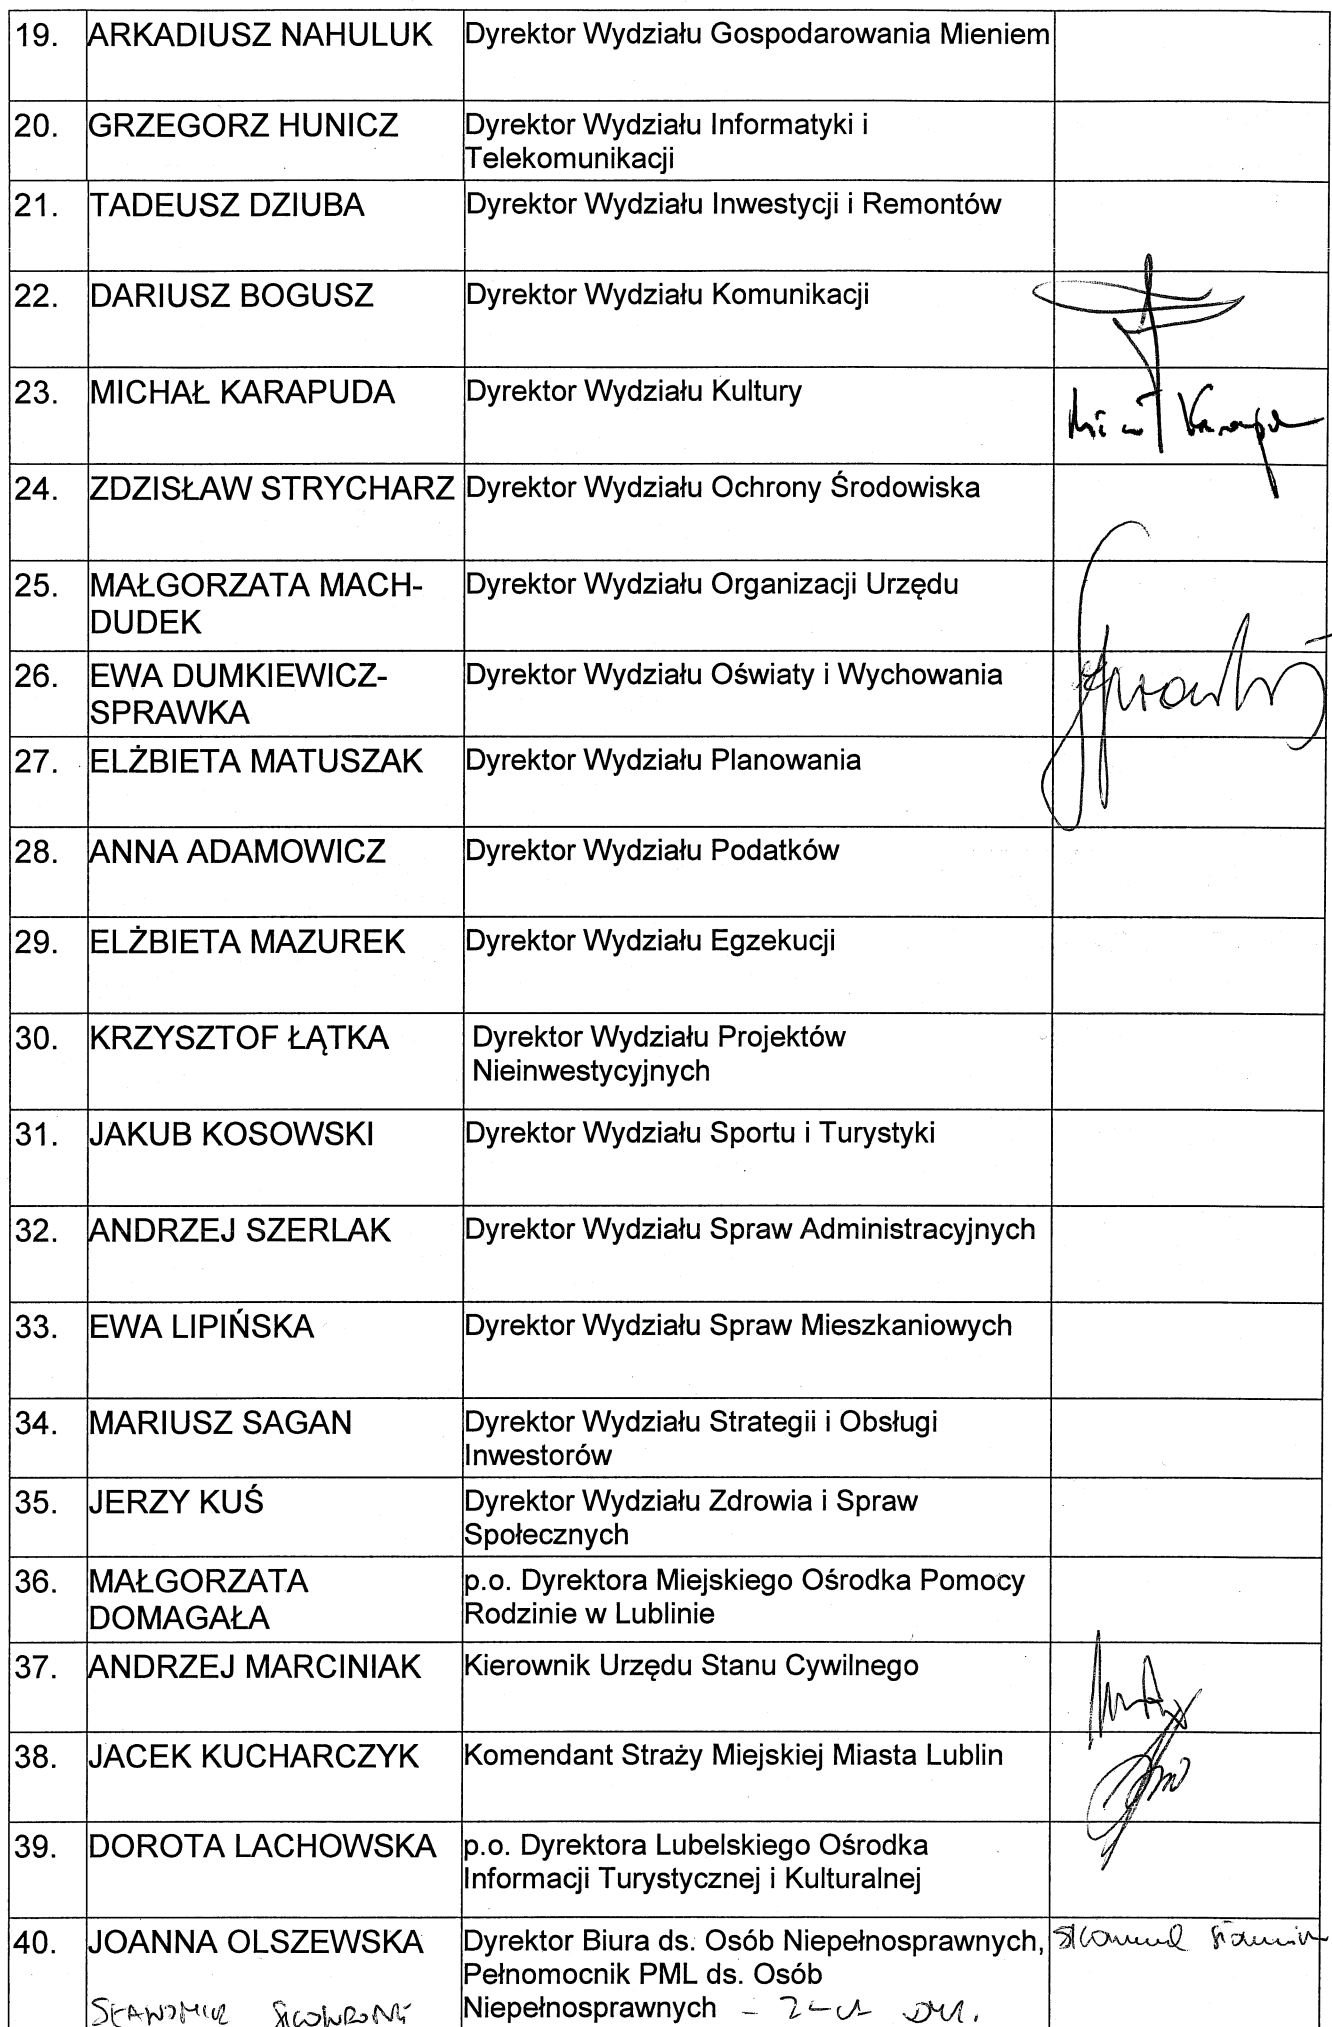 19. ARKADIUSZ NAHULUK Dyrektor Wydziału Gospodarowania Mieniem
20. GRZEGORZ HUNICZ Dyrektor Wydziału Informatyki i
Telekomunikacji
21. TADEUSZ DZIUBA Dyrektor Wydziału Inwestycji i Remontów
22. DARIUSZ BOGUSZ Dyrektor Wydziału Komunikacji
23. MICHAŁ KARAPUDA Dyrektor Wydziału Kultury
24. ZDZISŁAW STRYCHARZ Dyrektor Wydziału Ochrony Środowiska
25. MAŁGORZATA MACH- Dyrektor Wydziału Organizacji Urzędu
DUDEK
26. EWA DUMKIEWICZ- Dyrektor Wydziału Oświaty i Wychowania
SPRAWKA
27. ELŻBIETA MATUSZAK Dyrektor Wydziału Planowania
28. ANNA ADAMOWICZ Dyrektor Wydziału Podatków
29. ELŻBIETA MAZUREK Dyrektor Wydziału Egzekucji
30. KRZYSZTOF ŁĄTKA Dyrektor Wydziału Projektów
Nieinwestycyjnych
31. JAKUB KOSOWSKI Dyrektor Wydziału Sportu i Turystyki
32. ANDRZEJ SZERLAK Dyrektor Wydziału Spraw Administracyjnych
33. EWA LIPIŃSKA Dyrektor Wydziału Spraw Mieszkaniowych
34. MARIUSZ SAGAN Dyrektor Wydziału Strategii i Obsługi
Inwestorów
35. JERZY KUŚ Dyrektor Wydziału Zdrowia i Spraw
Społecznych
36. MAŁGORZATA p.o. Dyrektora Miejskiego Ośrodka Pomocy
DOMAGAŁA Rodzinie w Lublinie
37. ANDRZEJ MARCINIAK Kierownik Urzędu Stanu Cywilnego
38. JACEK KUCHARCZYK Komendant Straży Miejskiej Miasta Lublin
39. DOROTA LACHOWSKA p.o. Dyrektora Lubelskiego Ośrodka
Informacji Turystycznej i Kulturalnej
40. JOANNA OLSZEWSKA Dyrektor Biura ds. Osób Niepełnosprawnych,
Pełnomocnik PML ds. Osób
SŁAWOMIR Niepełnosprawnych